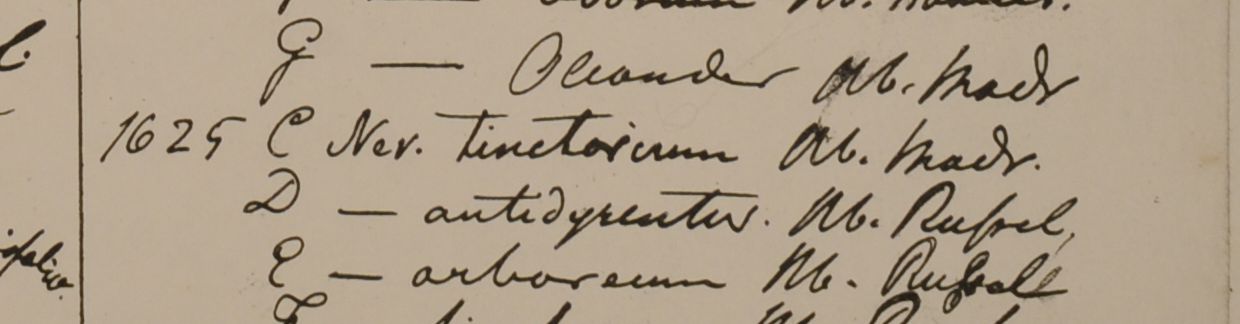 G — Oleander Hb. Madr
1625 C Ner. tinctorium Hb. Madr.
D — antidysenter. Hb. Russel,
E — arboreum Hb. Russell